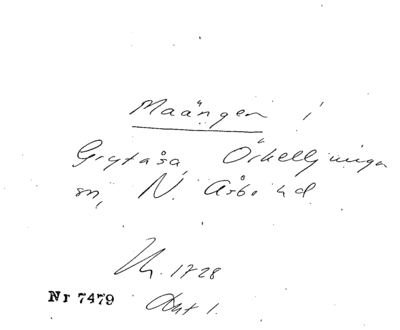 Maängen i
Grytåsa, Örkelljunga
sn, N. Åsbo hd.
Kh. 1728
Nr 7479
Akt 1.